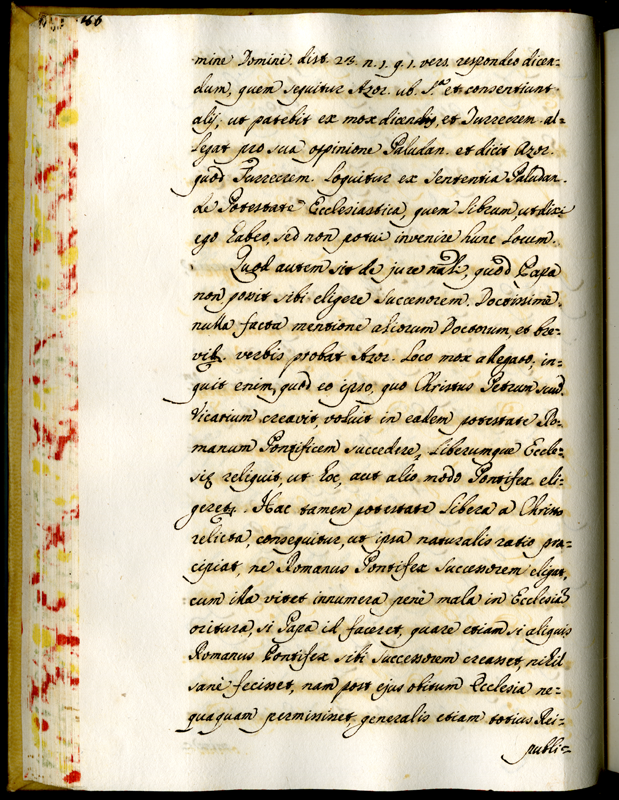 86
mine Domini. dist. 23. n. 1. q. 1. vers. respondeo dicen=
dum, quem sequitur Azor. ub. s.ª et consentiunt
alij, ut patebit ex mox dicendis, et Turrecrem. al=
legat pro sua oppinione Paludan. et dicit Azor.
quod Turrecrem. loquitur ex sententia Paludan.
de Potestate Ecclesiastica, quem librum, ut dixi
ego habeo, sed non potui invenire hunc locum.
Quod autem sit de jure nãli, quod Papa
non possit sibi eligere successorem. Doctissimè,
nulla facta mentione aliorum Doctorum, et bre=
vib. verbis probat Azor. loco mox allegato, in=
quit enim, quod eo ipso, quo Christus Petrum suũ
Vicarium creavit, voluit in eadem potestate Ro=
manum Pontificem succedere, liberumque Eccle=
się reliquit, ut hoc, aut alio modo Pontifex eli=
geretr. Hac tamen potestate libera a Christo
relicta, consequitur, ut ipsa naturalis ratio prę=
cipiat, ne Romanus Pontifex successorem eligat,
cum illa vitet innumera penè mala in Ecclesia
oritura, si Papa id faceret, quare etiam si aliquis
Romanus Pontifex sibi successorem creasset, nihil
sanè fecisset, nam post ejus obitum Ecclesia ne=
quaquam permisisset, generalis etiam totius Rei=
publi=